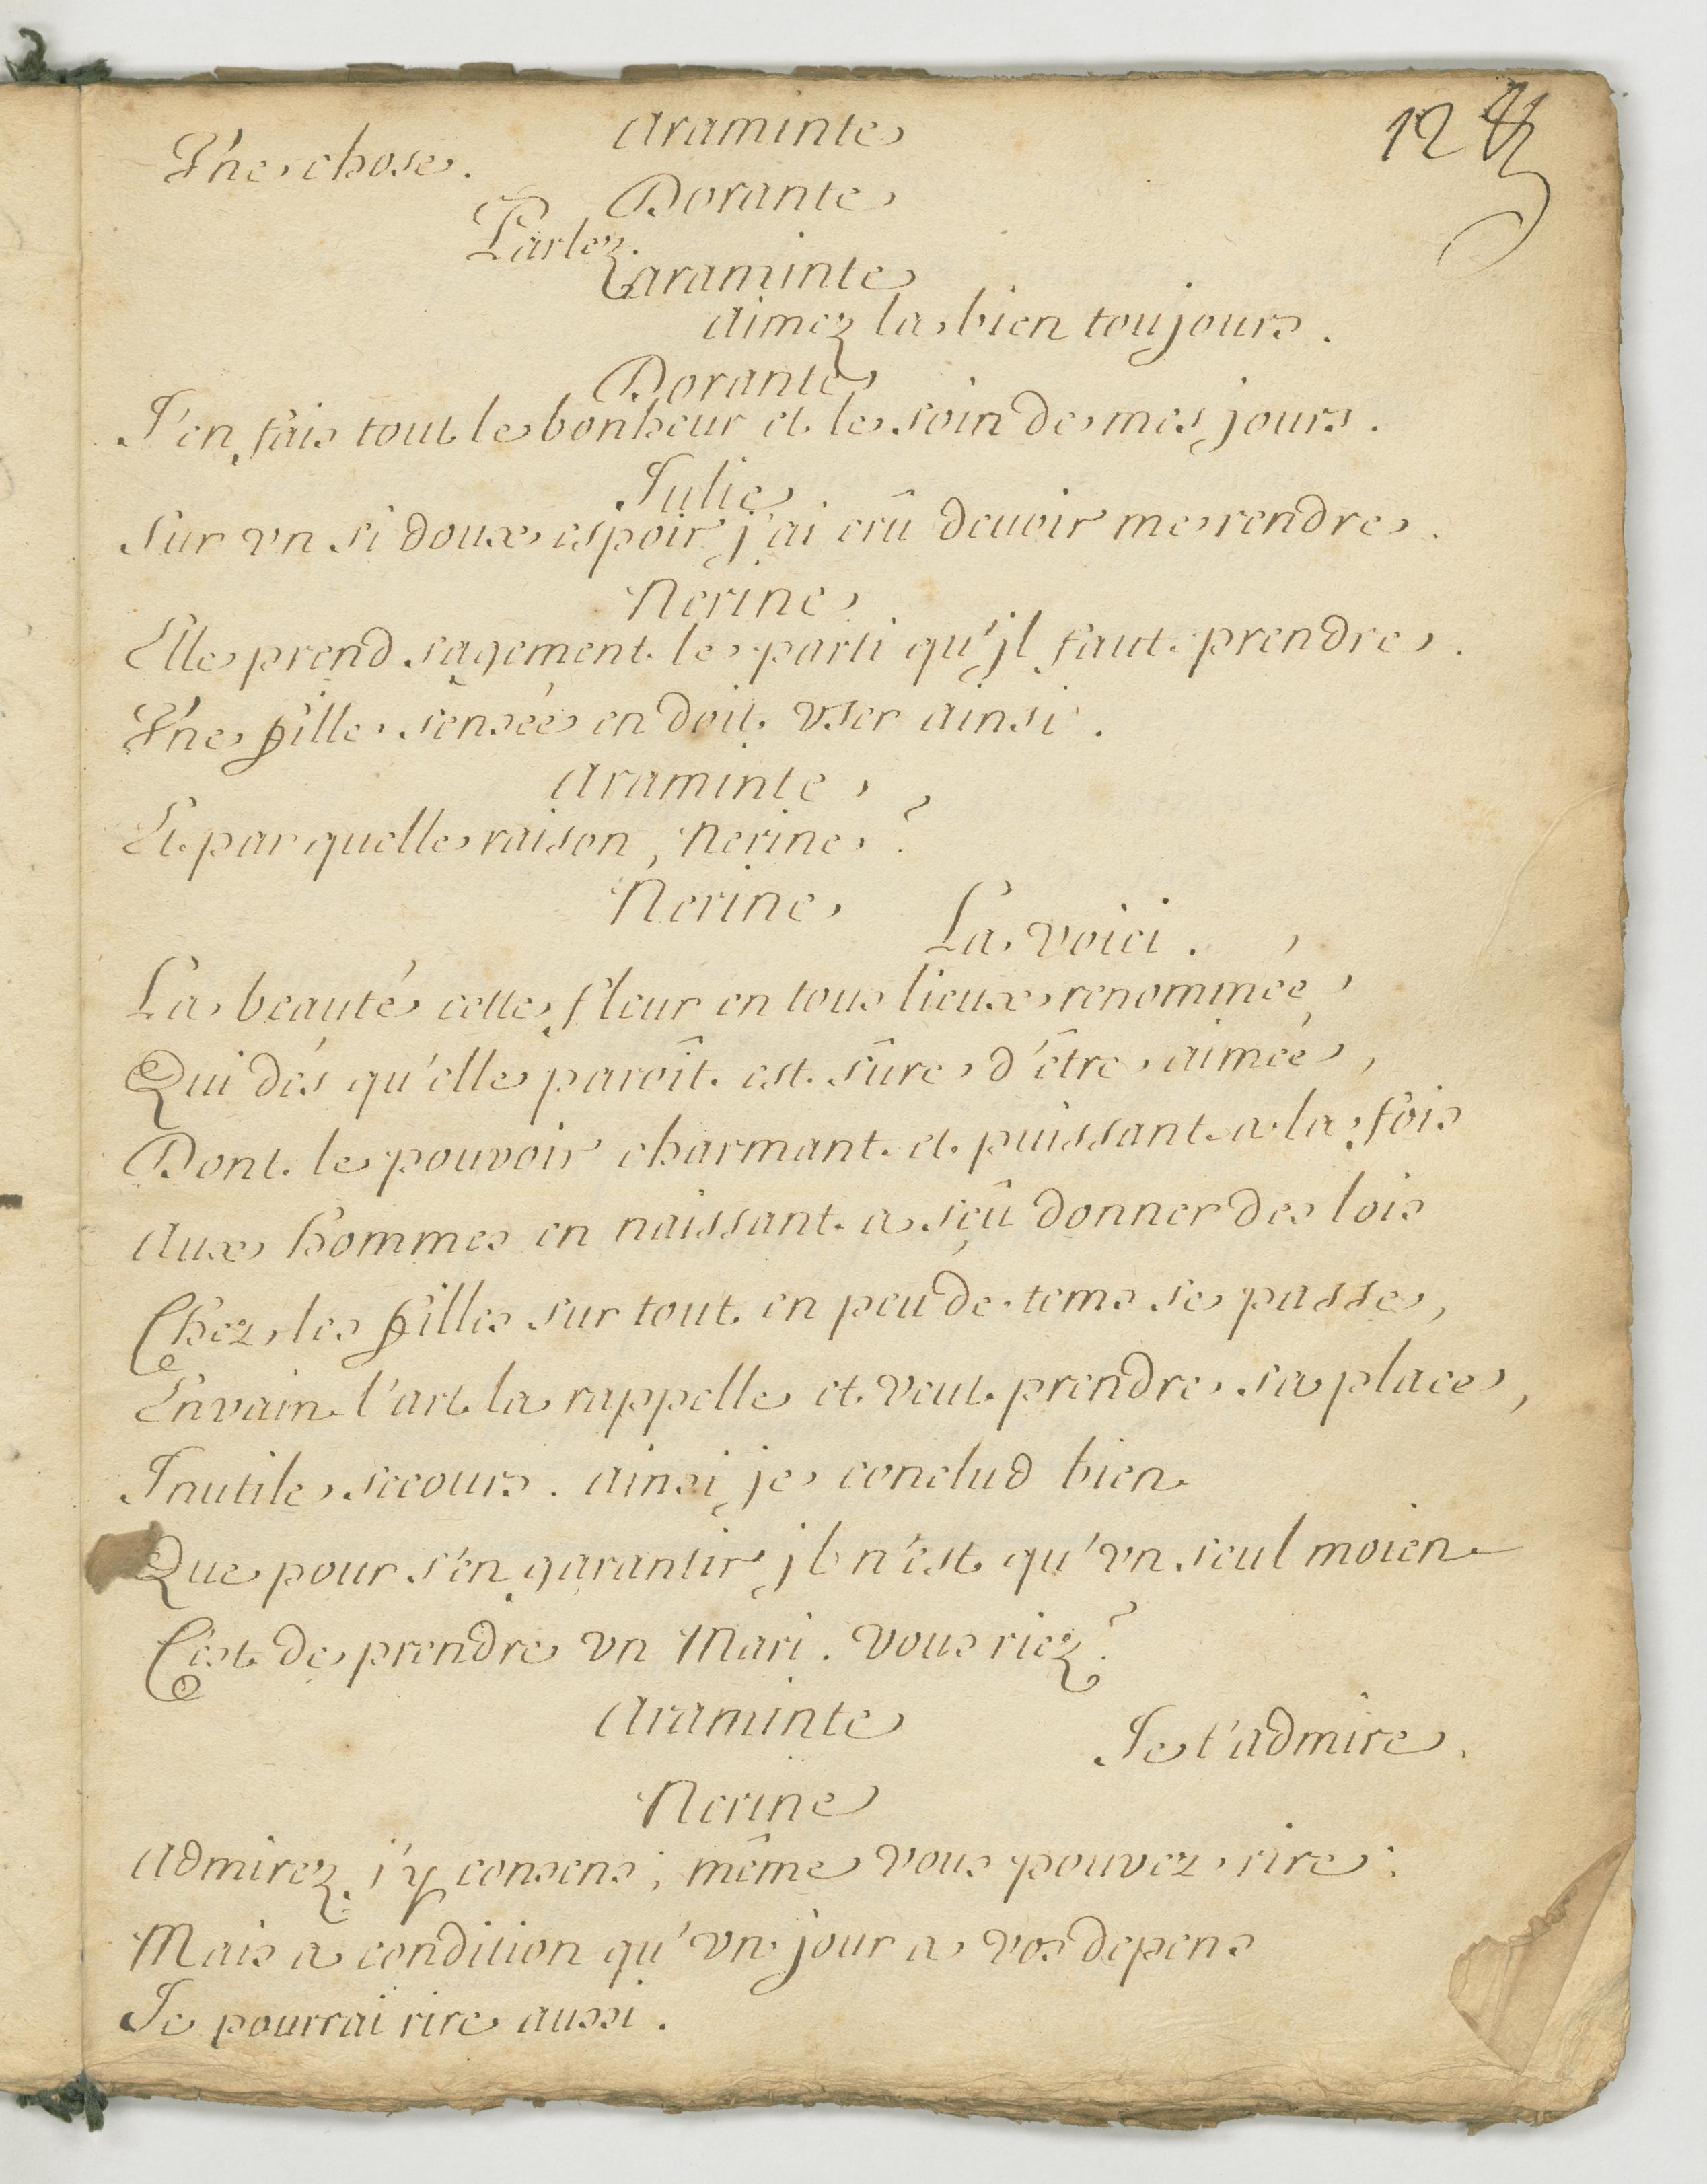 12
araminte
V'ne chose.
Dorante
Parlez.
araminte
aimez la bien toujours.
Dorante
J'en fais tout le bonheur et le soin de mes jours.
Julie.
Sur vn si doux espoir j'ai crû deuoir me rendre.
Nerine
Elle prend sagement le parti qu'jl faut prendre.
V'ne fille sensée en doit vser ainsi.
araminte
Et par quelle raison, Nerine?
Nerine
La voici.
La beauté cette fleur en tous lieux renommée,
Qui dés qu'elle paroît est sûre d'être aimée,
Dont le pouvoir charmant et puissant a la fois
aux hommes en naissant a sçû donner des lois
Chez les filles sur tout en peu de tems se passe,
Envain l'art la rappelle et veut prendre sa place,
Inutile secours. ainsi je conclud bien
Que pour s'en garantir jl n'est qu'vn seul moien
C'est de prendre vn Mari. Vous riez?
Araminte
Je t'admire.
Nerine
admirez j'y consens; même vous pouvez rire:
Mais a condition qu'vn jour a vos depens
Je pourrai rire aussi.